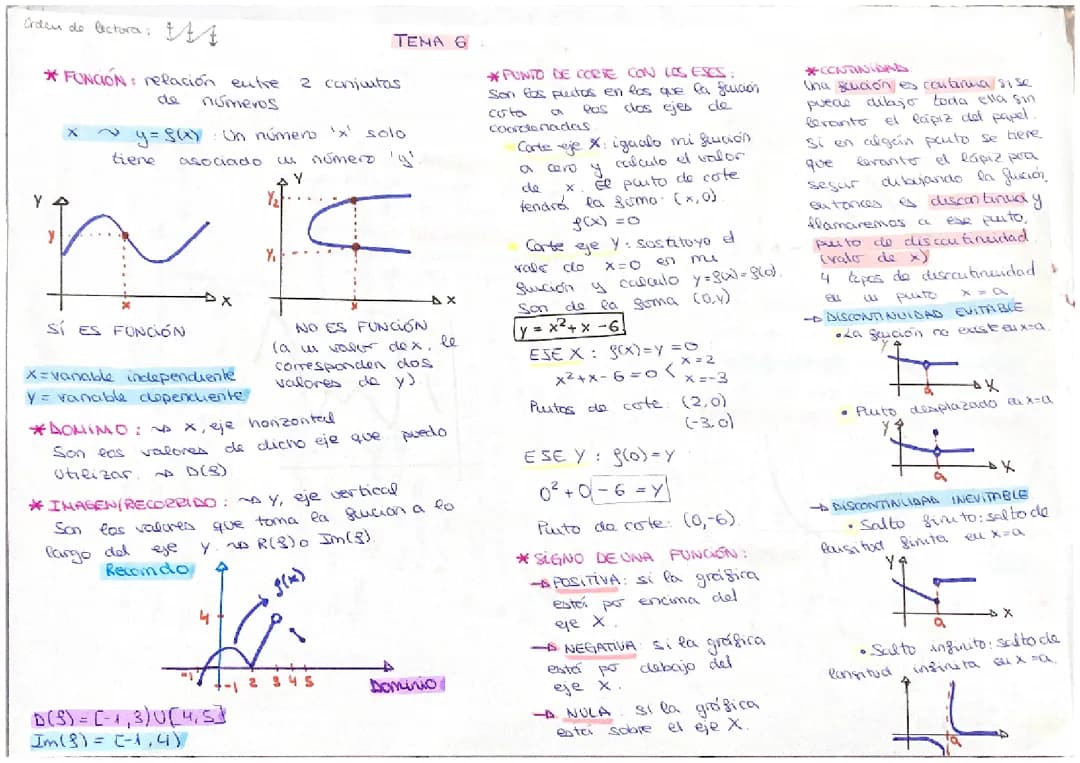 Orden de lectura:
TEMA 6
* FUNCIÓN: relación entre 2 conjuntos
de números
x ~> y=f(x) : Un número 'x' solo
tiene asociado un número 'y'.
Y
y
x
X
SÍ ES FUNCIÓN
Y
Y₂
Y₁
x
X
NO ES FUNCIÓN
(a un valor de x, le
corresponden dos
valores de y).
X=variable independiente
Y = variable dependiente
* DOMINIO: ~> x, eje horizontal
Son los valores de dicho eje que puedo
utilizar. ~> D(f)
* IMAGEN/RECORRIDO: ~> y, eje vertical
Son los valores que toma la función a lo
largo del eje y. ~> R(f) o Im(f)
Recorrido
f(x)
4
-1
-1 2 3 4 5
Dominio
D(f) = [-1,3) U [4,5]
Im(f) = [-1,4)
* PUNTO DE CORTE CON LOS EJES:
Son los puntos en los que la función
corta a los dos ejes de
coordenadas
Corte eje X: igualo mi función
a cero y calculo el valor
de x. El punto de corte
tendrá la forma: (x,0)
f(x) = 0
Corte eje Y: Sustituyo el
valor de x=0 en mi
función y calculo y=f(x)=f(0).
Son de la forma (0,y)
y = x²+x-6
EJE X: f(x)=y=0
x²+x-6=0 < x=2
x=-3
Puntos de corte: (2,0)
(-3,0)
EJE Y: f(0)=y
0²+0-6=y
Punto de corte: (0,-6)
* SIGNO DE UNA FUNCIÓN:
→ POSITIVA: si la gráfica
está por encima del
eje X.
→ NEGATIVA: si la gráfica
está por debajo del
eje X.
→ NULA: si la gráfica
está sobre el eje X.
* CONTINUIDAD
Una función es continua si se
puede dibujo toda ella sin
levanto el lápiz del papel.
Si en algún punto se tiene
que levanto el lápiz para
seguir dibujando la función,
entonces es discontinua y
llamaremos a ese punto,
punto de discontinuidad
(valor de x)
4 tipos de discontinuidad
en un punto x=a
→ DISCONTINUIDAD EVITABLE
• La función no existe en x=a.
Y
a
X
• Punto desplazado en x=a
Y
a
X
→ DISCONTINUIDAD INEVITABLE
• Salto finito: salto de
longitud finita en x=a
Y
a
X
• Salto infinito: salto de
longitud infinita en x=a.
a